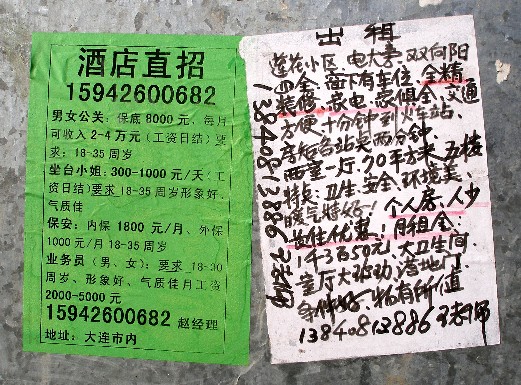 酒店直招
15942600682
男女公关：保底8000元、每月
可收入2-4万元（工资日结）要
求：18-35周岁
坐台小姐：300-1000元/天（工
资日结）要求18-35周岁形象好、
气质佳
保安：内保1800元/月、外保
1000元/月18-35周岁
业务员（男、女）：要求18-30
周岁、形象好、气质佳月工资
2000-5000元
15942600682 赵经理
地址：大连市内
出租
莲花小区 电大旁、双向阳
四全 街下有车位、全精
装修、家电、家俱全、交通
方便、十分钟到火车站、
两分钟
两室一厅70平方米、五楼
特点：卫生、安全、环境美
暖气特好！个人房、人少
优惠！月租金：
1436.50元、大卫生间
室厅大 落地门
条件好 物有所值
13840813886
13840813886